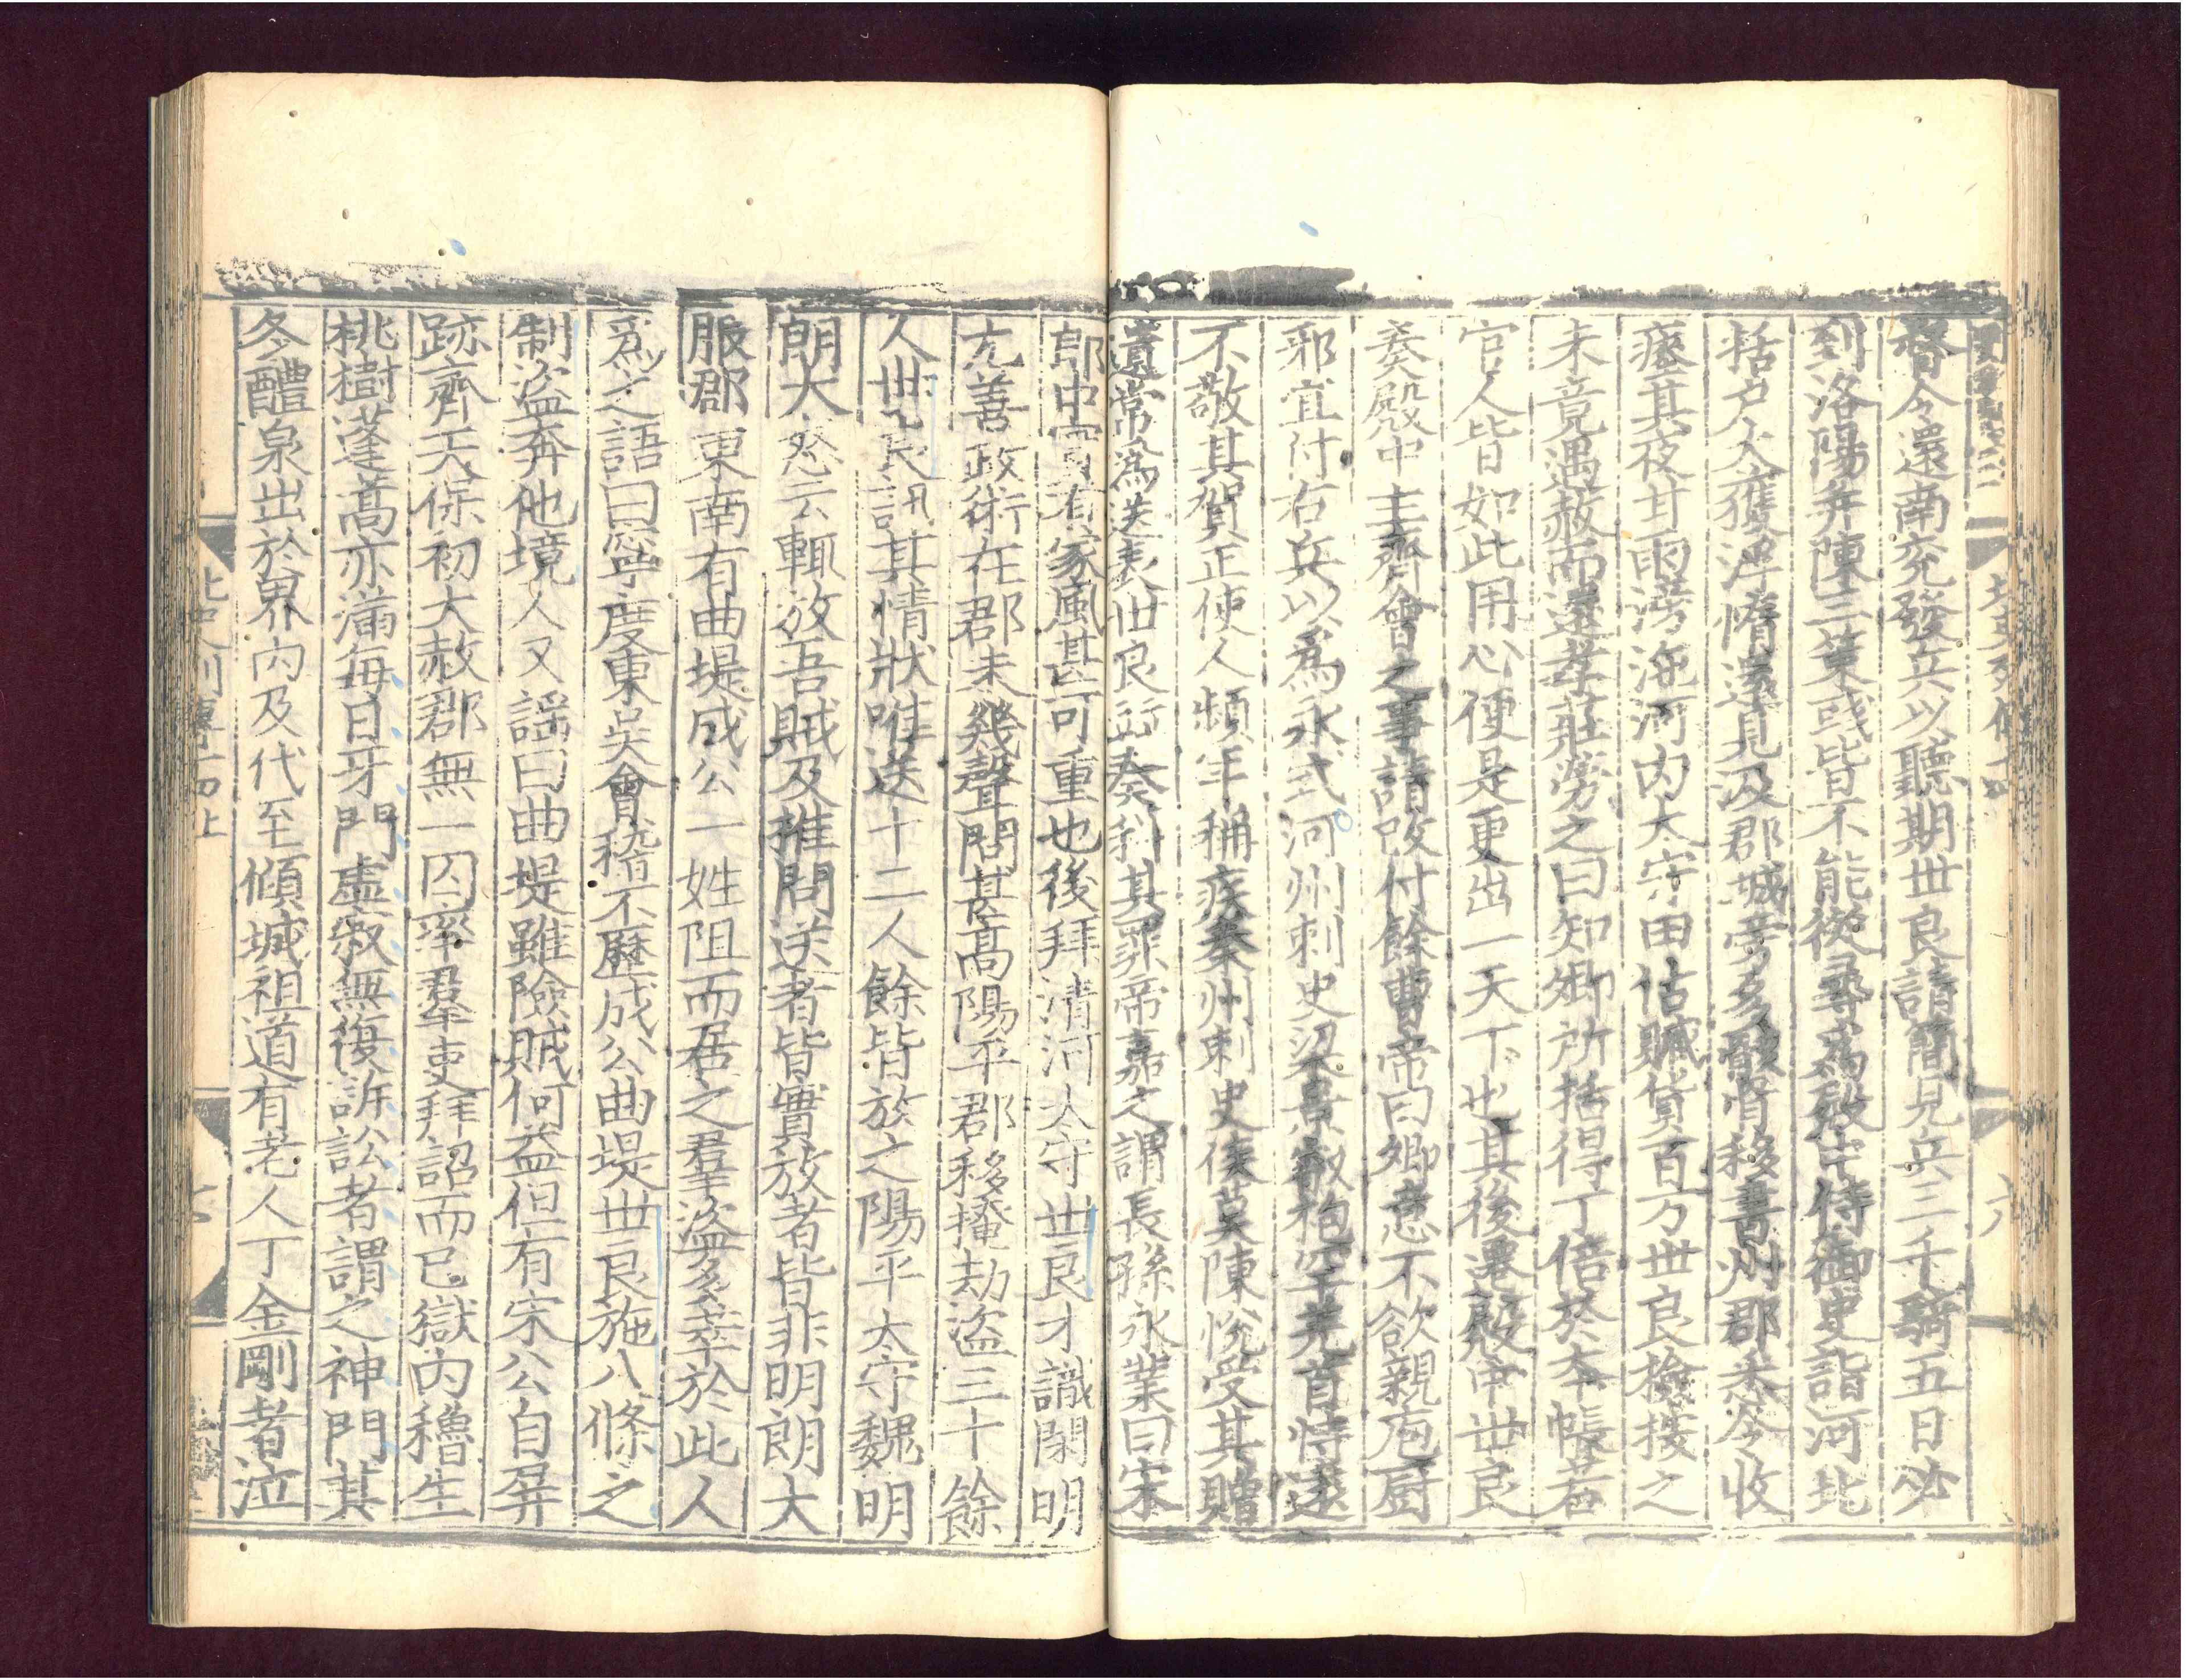 督令還南兖發兵以聽期世良請簡見兵三千騎五日必
到洛陽并陳三策或皆不能從尋爲殿中侍御史詣河北
括户大獲浮惰還見汲郡城旁多骸骨移書州郡悉令收
瘗其夜甘雨滂沲河内太守田估贓貨百万世良檢按之
未竟遇赦而還孝莊勞之曰知卿所括得丁倍於本帳若
官人皆如此用心便是更出一天下也其後遷殿中世良
奏殿中主齊會之事請改付餘曹帝曰卿意不欲親庖厨
邪宜付右兵以爲永式河州刺史梁景叡枹罕羌首恃遠
不敬其賀正使人頻年稱疾秦州刺史侯莫陳悦受其贈
遺常爲送表世良並奏科其罪帝嘉之謂長孫永業曰宋
郎中實有家風甚可重也後拜清河太守世良才識閑明
尤善政術在郡未幾聲問甚高陽平郡移掩劫盗三十餘
人世良訊其情狀唯送十二人餘皆放之陽平太守魏明
朗大怒云輒放吾賊及推問送者皆實放者皆非明朗大
服郡東南有曲堤成公一姓阻而居之羣盗多萃於此人
爲之語曰寧度東吴會稽不歷成公曲堤世良施八條之
制盗奔他境人又謡曰曲堤雖險賊何益但有宋公自屏
跡齊天保初大赦郡無一囚率羣吏拜詔而已獄内穭生
桃樹蓬蒿亦滿每日牙門虚寂無復訴訟者謂之神門其
冬醴泉出於界内及代至傾城祖道有老人丁金剛者泣
北史列傳十四上
七
六